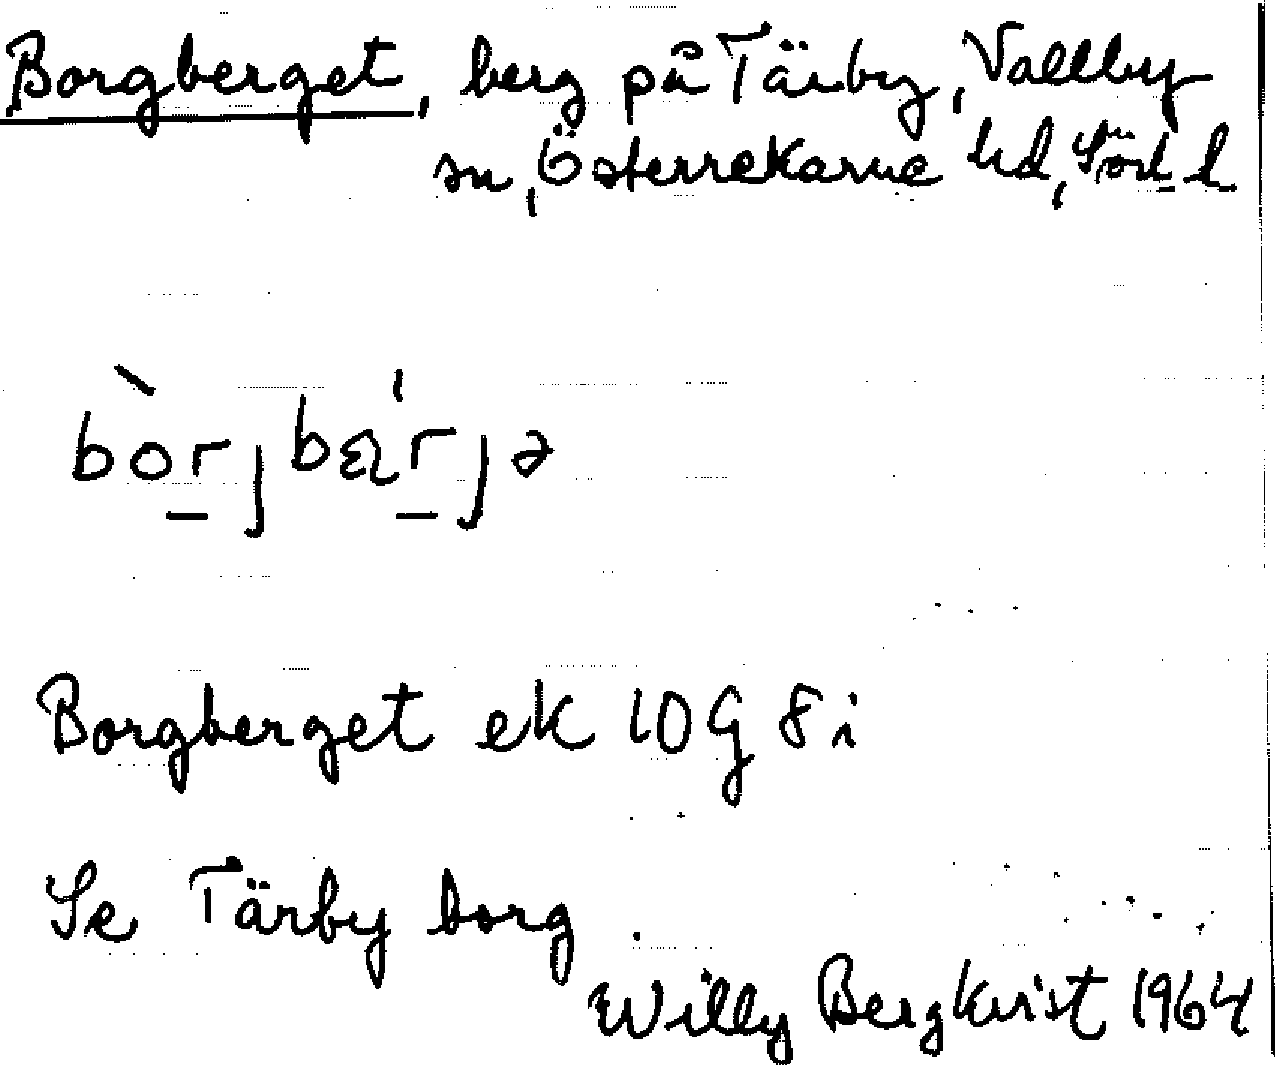 Borgberget, berg på Tärby, Vallby
sn, Österrekarne hd, Sörl l
bòrjbæ'rjə
Borgberget ek 10G 8i
Se Tärby borg.
Willy Bergkvist 1964